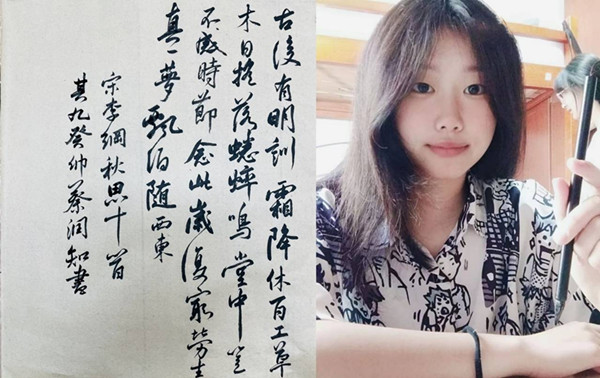 古後有明訓霜降休百工草
木日搖落蟋蟀鳴堂中豈
不感時節念此歲復窮勞生
真一夢飄泊随西東
宋李綱秋思十首
其九癸卯蔡潤知書